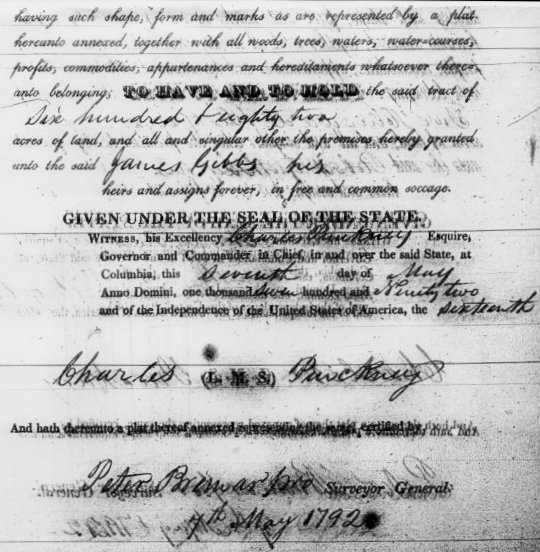 having such shape, form and marks as are represented by a plat
hereunto annexed, together with all woods, trees, waters, water-courses,
profits, commodities, appurtenances and hereditaments whatsoever there-
unto belonging; TO HAVE AND TO HOLD the said tract of
Six hundred & eighty two
acres of land, and all and singular other the premises hereby granted
unto the said James Gibbs his
heirs and assigns forever, in free and common soccage.
GIVEN UNDER THE SEAL OF THE STATE.
WITNESS, his Excellency Charles Pinckney Esquire,
Governor and Commander in Chief, in and over the said State, at
Columbia, this Seventh day of May
Anno Domini, one thousand seven hundred and Ninety two
and of the Independence of the United States of America, the Sixteenth
Charles (L. M. S.) Pinckney
And hath thereunto a plat thereof annexed representing the same, certified by
Peter Bremar pro Surveyor General.
7th May 1792